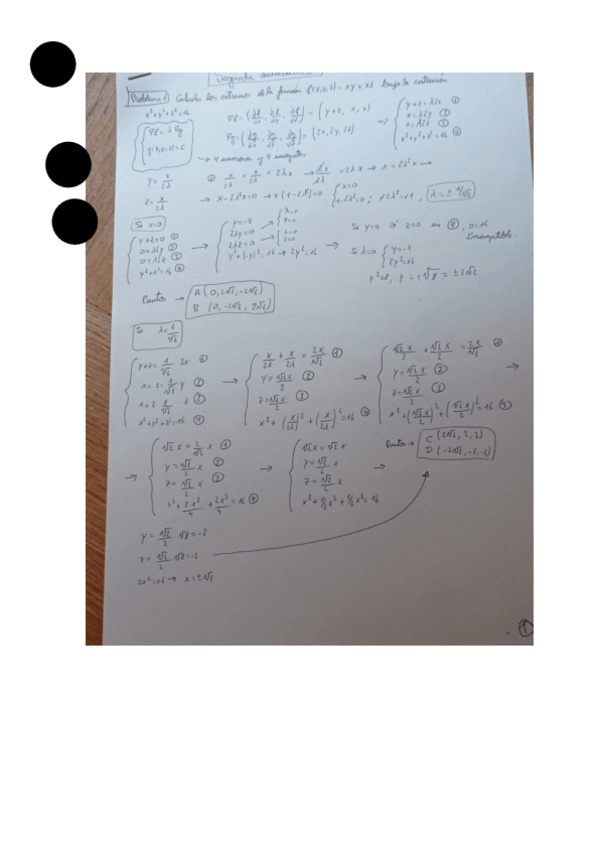 Problema 1) Calcula los extremos de la función f(x,y,z) = xy + xz bajo la restricción
x²+y²+z²=16
∇f = (∂f/∂x, ∂f/∂y, ∂f/∂z) = (y+z, x, x)
∇g = (∂g/∂x, ∂g/∂y, ∂g/∂z) = (2x, 2y, 2z)
{ ∇f = λ∇g
g(x,y,z)=c
→ 4 ecuaciones y 4 incógnitas
y = x/2λ
z = x/2λ
x/2λ + x/2λ = 2λx
→ x - 2λ²x=0 → x(1-2λ²)=0 { x=0
1-2λ²=0; λ = ± 1/√2
Si x=0
{ y+z=0 ①
0=λ2y ②
0=λ2z ③
y²+z²=16 ④
→ { y=-z
2λy=0
2λz=0
y²+(-y)²=16 → 2y²=16
→ Si y=0 ó z=0 en ④; 0=16
Incompatible
Si λ=0 { y=-z
2y²=16
y²=8, y = ±√8 = ±2√2
Puntos → A (0, 2√2, -2√2)
B (0, -2√2, 2√2)
Si λ = 1/√2
{ y+z = 1/√2 2x ①
x = 2·1/√2 y ②
x = 2·1/√2 z ③
x²+y²+z²=16 ④
→ { x/2λ + x/2λ = 2x/√2 ①
y = √2x/2 ②
z = √2x/2 ③
x² + (x/2λ)² + (x/2λ)² = 16 ④
→ { √2x/2 + √2x/2 = 2x/√2 ①
y = √2x/2 ②
z = √2x/2 ③
x² + (√2x/2)² + (√2x/2)² = 16 ④
→ { √2 x = 2/√2 x ①
y = √2/2 x ②
z = √2/2 x ③
x² + 2x²/4 + 2x²/4 = 16 ④
→ { √2x = √2x
y = √2/2 x
z = √2/2 x
→ Puntos → C (2√2, 2, 2)
D (-2√2, -2, -2)
y = √2/2 · √8 = -2
z = √2/2 · √8 = -2
2x²=16 →
①